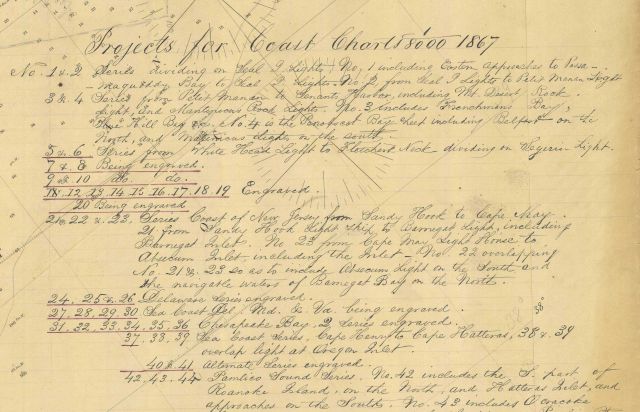 Projects for Coast Charts 1/80000 1867
No. 1 & 2 Series dividing on Seal I Light, No. 1 including Eastern approaches to Passa-
maquoddy Bay to Seal I. Light - No. 2 from Seal I Lights to Petit Manan Light
3 & 4 Series from Petit Manan to Tenants Harbor, including Mt. Desert Rock
Light and Matinicus Rock Lights. No. 3 includes Frenchmans Bay,
Blue Hill Bay &c. No. 4 is the Penobscot Bay sheet including Belfast on the
North, and Matinicus Lights on the south
5 & 6 Series from White Head Light to Fletchers Neck dividing on Seguin Light.
7 & 8 Being engraved.
9 & 10 do. do.
11. 12. 13. 14. 15. 16. 17. 18. 19 Engraved.
20 Being engraved
21. 22 & 23. Series Coast of New Jersey from Sandy Hook to Cape May.
21 from Sandy Hook Light Ship to Barnegat Light, including
Barnegat Inlet. No 23 from Cape May Light House to
Absecum Inlet, including the Inlet - No. 22 overlapping
No. 21 & 23 so as to include Absecum Light on the South and
the navigable waters of Barnegat Bay on the North.
24. 25 & 26 Delaware Series engraved.
27. 28. 29. 30 Sea Coast Del., Md. & Va. being engraved.
31. 32. 33. 34. 35. 36 Chesapeake Bay. 2 series engraved.
37. 38. 39 Sea Coast Series, Cape Henry to Cape Hatteras, 38 & 39
overlap light at Oregon Inlet.
40 & 41 Albemarle Series engraved.
42. 43. 44 Pamlico Sound Series. No. 42 includes the S. part of
Roanoke Island, on the North, and Hatteras Inlet, and
approaches on the South. No. 43 includes Ocracoke